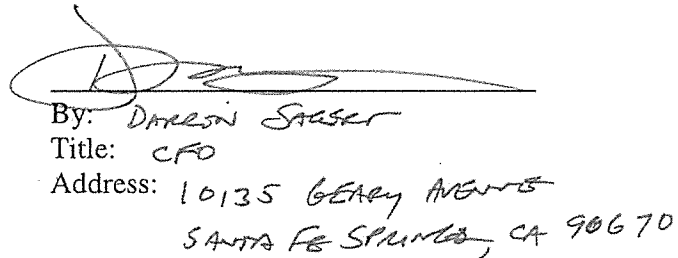 By: DARRIN SAGERT
Title: CFO
Address: 10135 GEARY AVENUE
SANTA FE SPRINGS, CA 90670